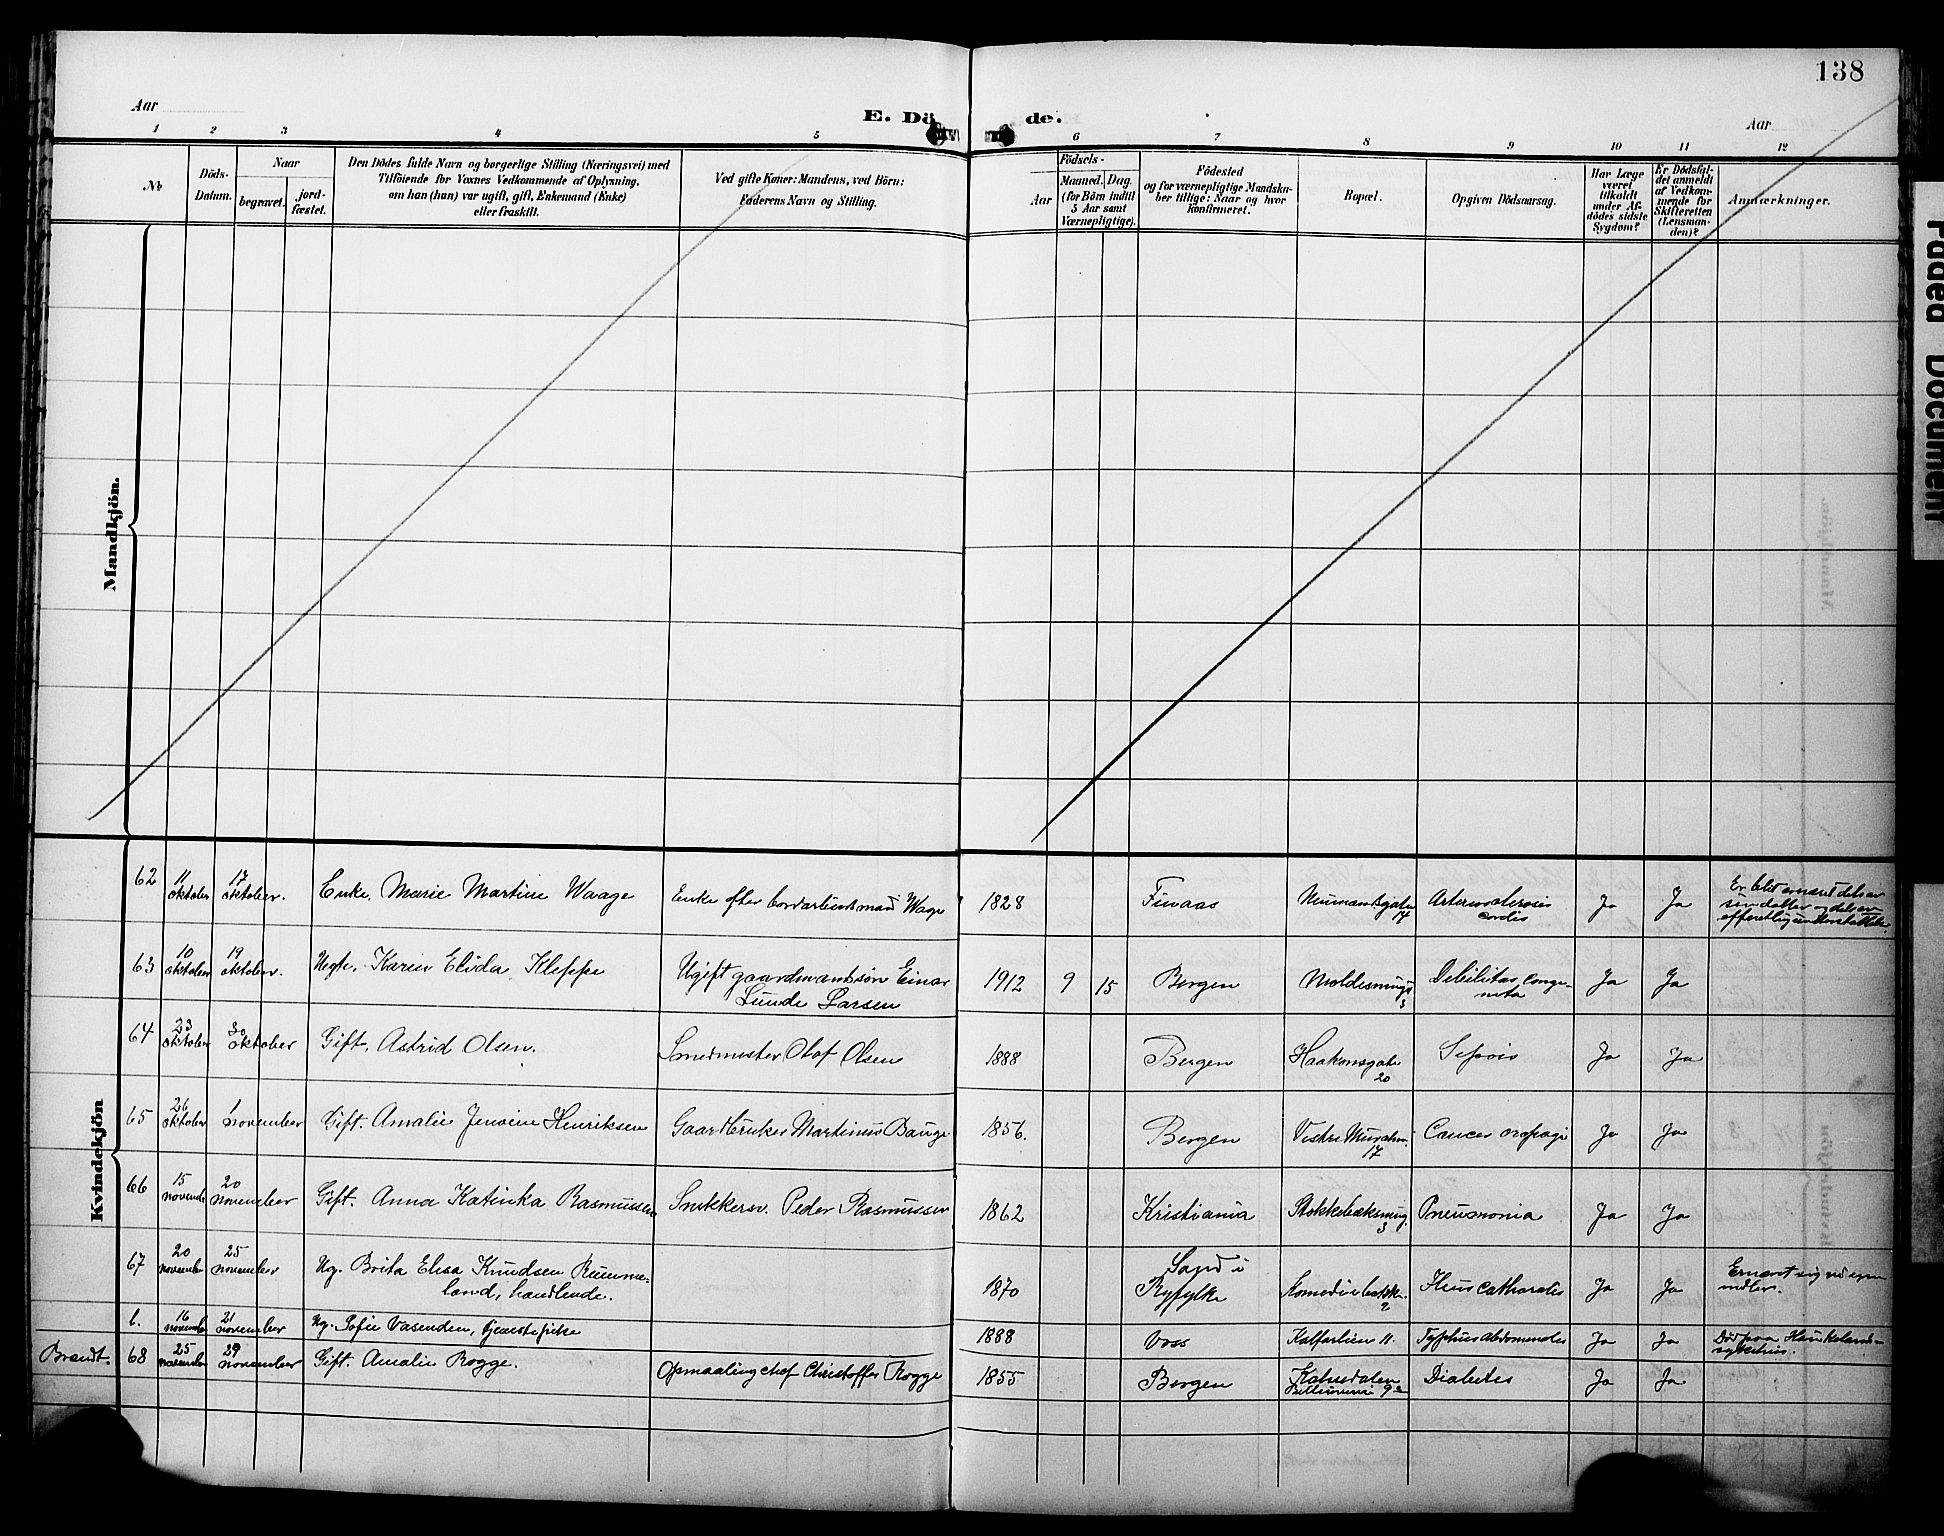 138
Aar
E. Dö de.
Aar
1 2 3 4 5 6 7 8 9 10 11 12
No
Döds-Datum.
Naar
begravet.
jord-fæstet.
Den Dödes fulde Navn og borgerlige Stilling (Næringsvei) med
Tilföiende for Voxnes Vedkommende af Oplysning,
om han (hun) var ugift, gift, Enkemand (Enke)
eller fraskilt.
Ved gifte Koner: Mandens, ved Börn:
Faderens Navn og Stilling.
Födsels-
Aar
Maaned. Dag.
(for Börn indtil
5 Aar samt
Værnepligtige).
Födested
og for værnepligtige Mandska-
ber tillige: Naar og hvor
konfirmeret.
Bopæl.
Opgiven Dödsaarsag.
Har Læge
været
tilkaldt
under Af-
dödes sidste
Sygdom?
Er Dödsfal-
det anmeldt
af Vedkom-
mende for
Skifteretten
(Lensman-
den)?
Anmærkninger.
Mandkjön.
Kvindekjön
62 11 oktober 17 oktober. Enke. Marie Martine Waage Enke efter Wage 1828 Finaas Neumansgate 14 cordis Ja Ja
63 10 oktober 19 oktober. Uegte. Karen Elida Kleppe Ugift gaardmandssøn Einar
Lunde Larsen 1912 9 15 Bergen 3 Debilitas conge-
nita Ja Ja
64 23 oktober 30 oktober Gift. Astrid Olsen. Smedmester Olof Olsen 1888 Bergen Haakonsgate
20 Sepsis Ja Ja
65 26 oktober 1 november Gift. Amalie Jensine Henriksen Gaardbruker Martinus Bauge 1856. Bergen Vestre
17 Cancer Ja Ja
66 15 november 20 november Gift. Anna Katinka Rasmussen Snekkersv. Peder Rasmussen 1862 Kristiania
3 Pneumonia Ja Ja
67 20 november 25 november Ug. Brita Elisa Knudsen Rumme-
land, handlende. 1870 Sand i
Ryfylke
9 catharalis Ja Ja
midler.
b. 16 november 21 november Ug. Sofie Vasenden, tjenestepike 1888 Voss Kalfarlien 11. Typhus abdominalis Ja Ja Död paa Haukeland-
sykehus.
Brandt. 68 25 november 29 november Gift. Amalie Rogge. Opmaalingchef Christoffer Rogge 1855 Bergen Kalvedalen Diabetes Ja Ja
Faded Document